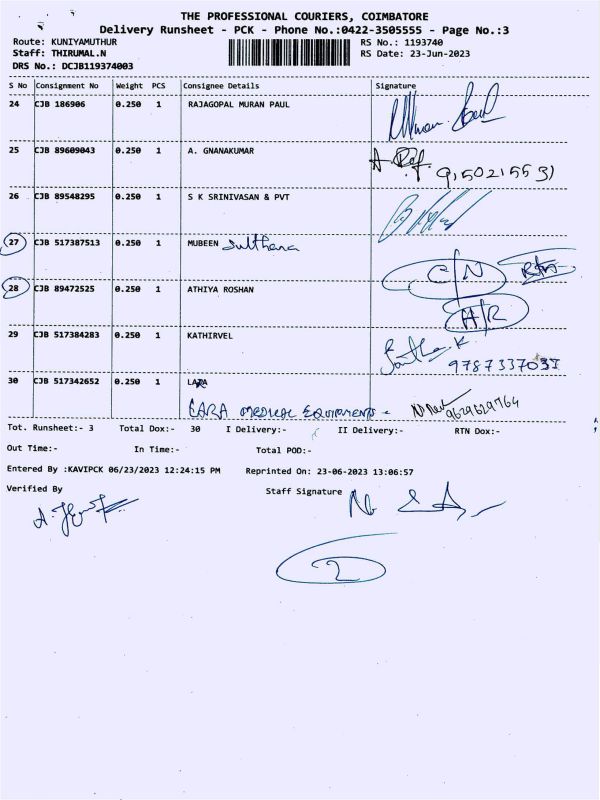 THE PROFESSIONAL COURIERS, COIMBATORE
Delivery Runsheet - PCK - Phone No.:0422-3505555 - Page No.:3
Route: KUNIYAMUTHUR RS No.: 1193740
Staff: THIRUMAL.N RS Date: 23-Jun-2023
DRS No.: DCJB119374003
S No Consignment No Weight PCS Consignee Details Signature
24 CJB 186906 0.250 1 RAJAGOPAL MURAN PAUL
25 CJB 89609043 0.250 1 A. GNANAKUMAR
9150215531
26 CJB 89548295 0.250 1 S K SRINIVASAN & PVT
27 CJB 517387513 0.250 1 MUBEEN Sulthana
C/N
28 CJB 89472525 0.250 1 ATHIYA ROSHAN
A/R
29 CJB 517384283 0.250 1 KATHIRVEL
9787337037
30 CJB 517342652 0.250 1 LARA
LARA MEDICAL EQUIPMENTS - 9629629764
Tot. Runsheet:- 3 Total Dox:- 30 I Delivery:- II Delivery:- RTN Dox:-
Out Time:- In Time:- Total POD:-
Entered By :KAVIPCK 06/23/2023 12:24:15 PM Reprinted On: 23-06-2023 13:06:57
Verified By Staff Signature
2